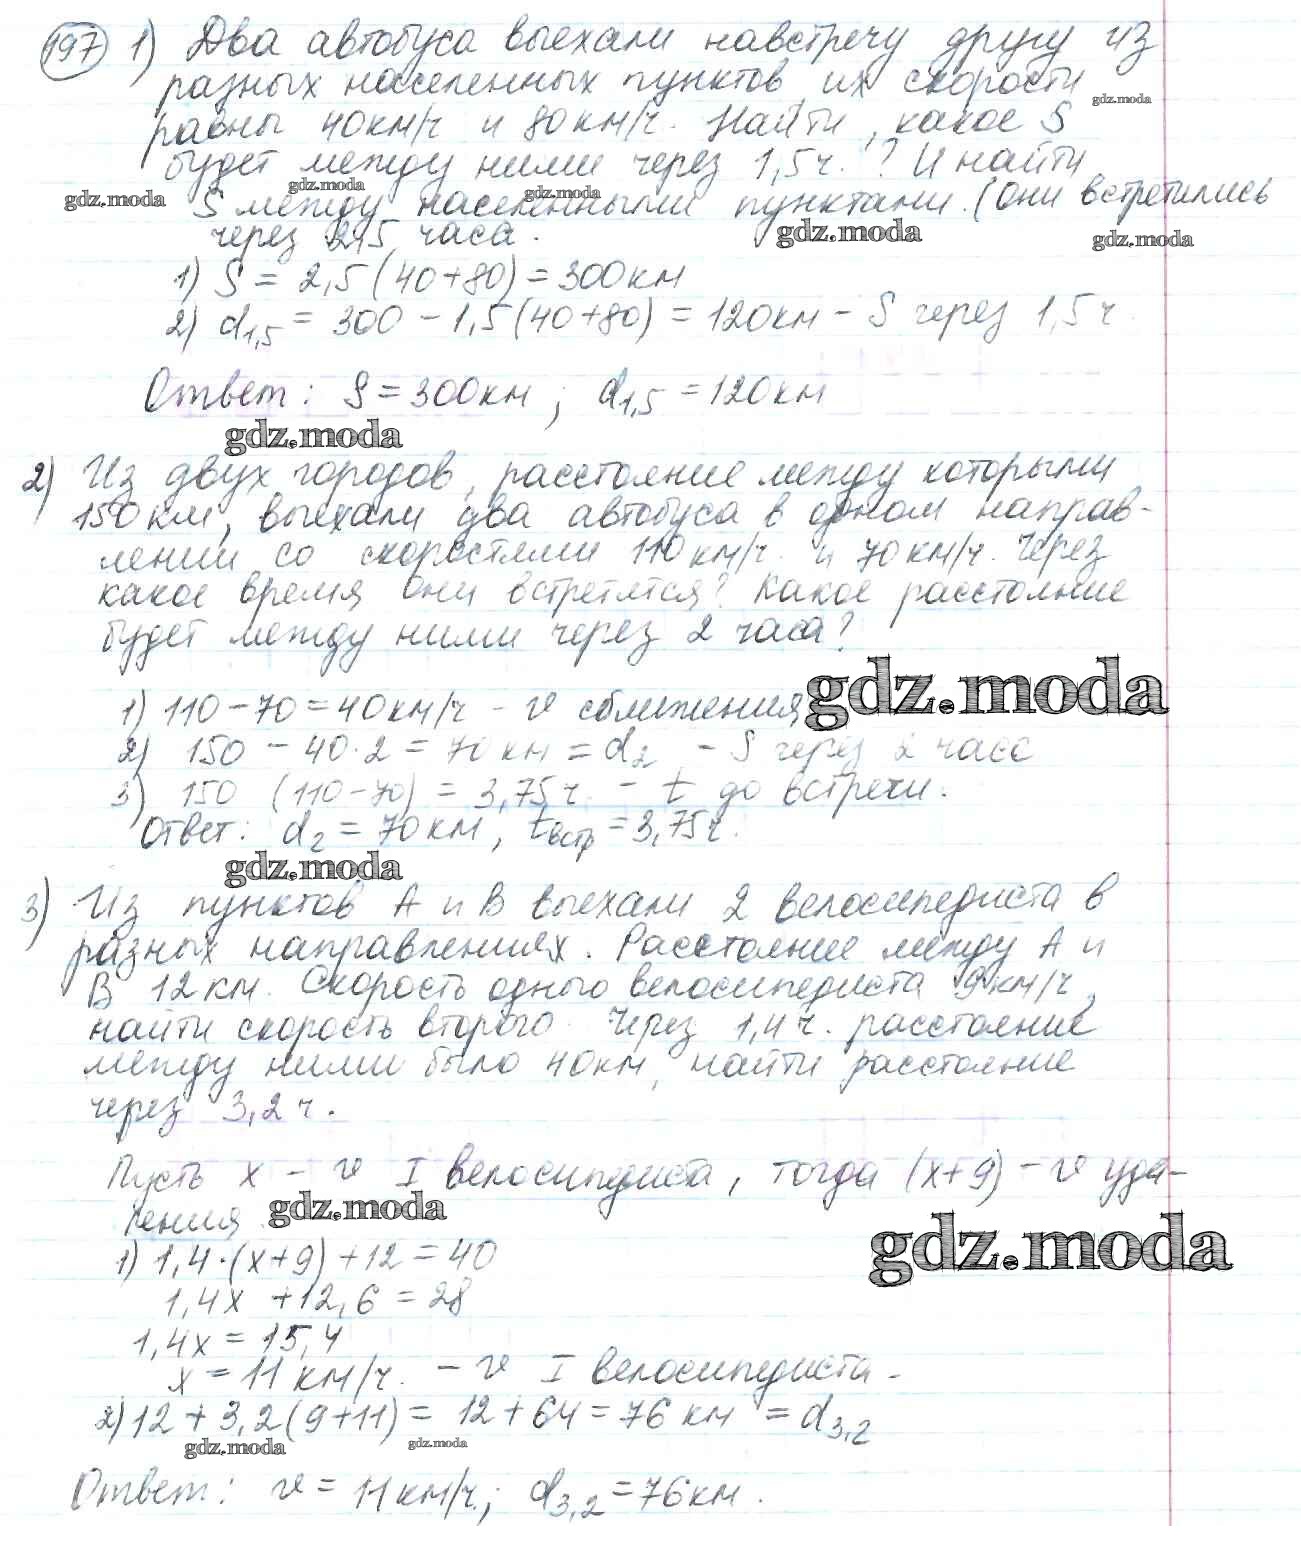 197 1) Два автобуса выехали навстречу другу из
разных населенных пунктов, их скорости
gdz.moda
равны 40км/ч и 80км/ч. Найти, какое S
будет между ними через 1,5ч.? И найти
gdz.moda gdz.moda gdz.moda
S между населенными пунктами. (Они встретились
через 2,5 часа.
gdz.moda gdz.moda
1) S = 2,5 (40+80) = 300км
2) d1,5 = 300 - 1,5 (40+80) = 120км - S через 1,5ч.
Ответ: S = 300км; d1,5 = 120км
gdz.moda
2) Из двух городов, расстояние между которыми
150км, выехали два автобуса в одном направ-
лении со скоростями 110км/ч. и 70км/ч. Через
какое время они встретятся? Какое расстояние
будет между ними через 2 часа?
gdz.moda
1) 110 - 70 = 40км/ч - v сближения
2) 150 - 40·2 = 70км = d2 - S через 2 часа
3) 150 (110-70) = 3,75ч. - t до встречи.
Ответ: d2 = 70км, tвстр = 3,75ч.
gdz.moda
3) Из пунктов А и В выехали 2 велосипедиста в
разных направлениях. Расстояние между А и
В 12км. Скорость одного велосипедиста 9км/ч,
найти скорость второго. Через 1,4ч. расстояние
между ними было 40км, найти расстояние
через 3,2ч.
Пусть x - v I велосипедиста, тогда (x+9) - v уда-
ления
gdz.moda
gdz.moda
1) 1,4·(x+9)+12 = 40
1,4x +12,6 = 28
1,4x = 15,4
x = 11км/ч. - v I велосипедиста.
2) 12 + 3,2(9+11) = 12+64 = 76км = d3,2
gdz.moda gdz.moda
Ответ: v = 11км/ч.; d3,2 = 76км.